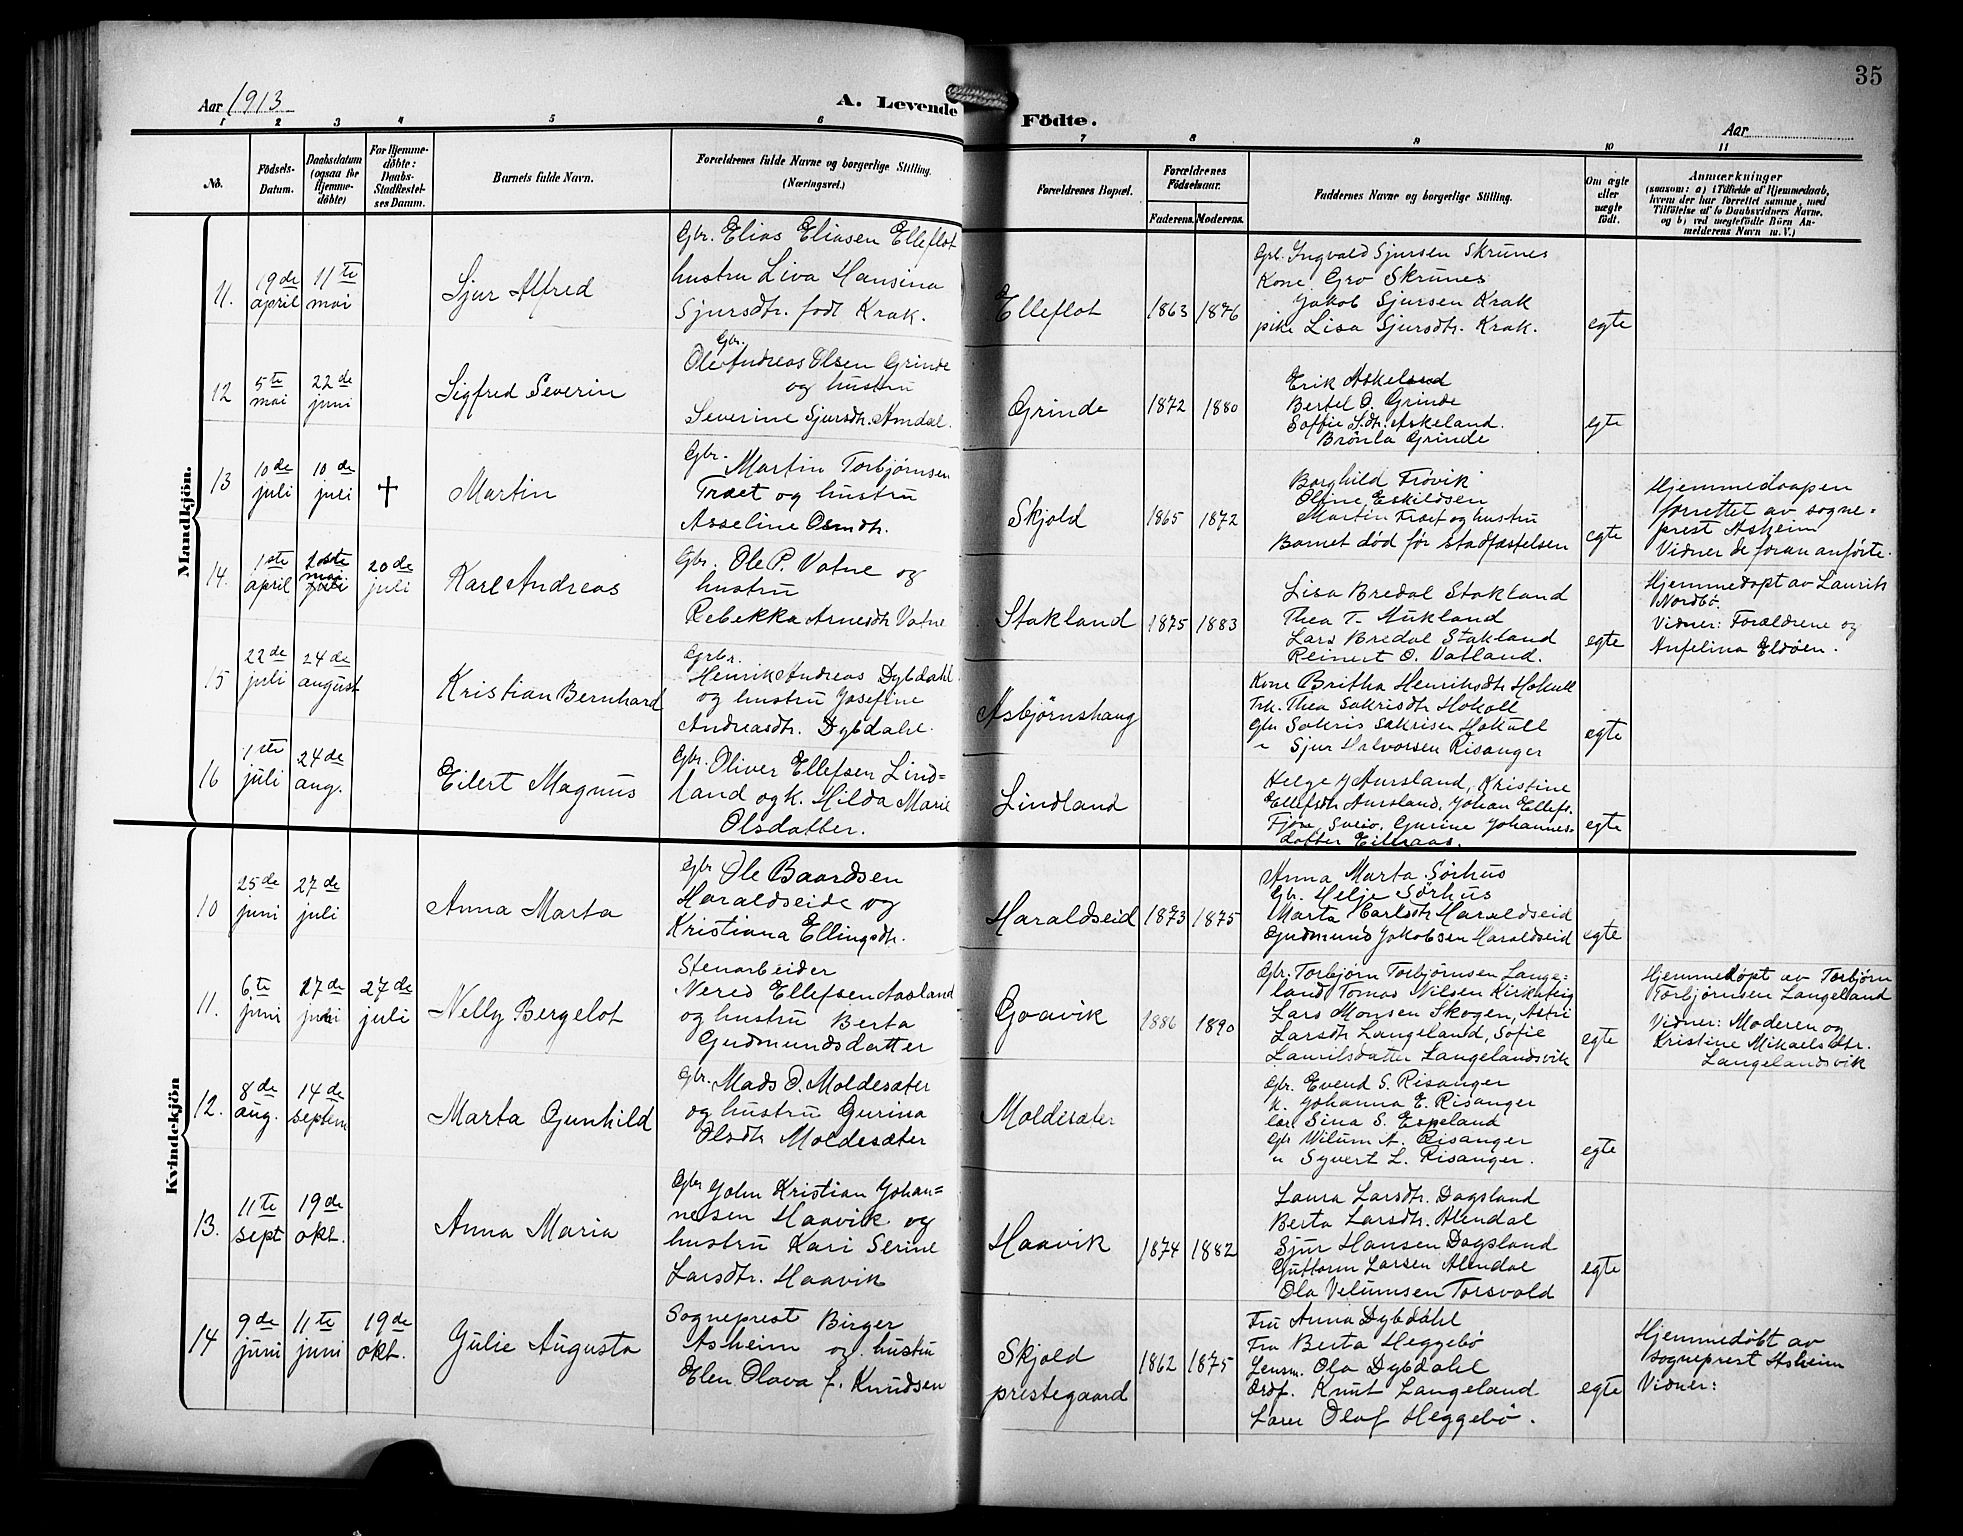 35
Aar 1913
A. Levende
Födte.
Aar
1 2 3 4 5 6 7 8 9 10 11
No.
Födsels-
Datum.
Daabsdatum
(ogsaa for
Hjemme-
döbte)
For Hjemme-
döbte:
Daabs-
Stadfæstel-
ses Datum.
Barnets fulde Navn.
Forældrenes fulde Navne og borgerlige Stilling.
(Næringsvei.)
Forældrenes Bopæl.
Forældrenes
Födselsaar.
Faderens.
Moderens.
Faddernes Navne og borgerlige Stilling.
Om ægte
eller
uægte
födt.
Anmærkninger
(saasom: a) i Tilfælde af Hjemmedaab,
hvem der har forrettet samme, med
Tilföielse af to Daabsvidners Navne,
og b) ved uægtefödte Börn An-
melderens Navn m. V.)
Mandkjön.
11.
19de
april
11te
mai
Sjur Alfred
Gbr. Elias Eliasen Elleflot
hustru Liva Hansina
Sjursdtr. født Krak.
Elleflot
1863
1876
Gbr. Ingvald Sjursen Skrunes
Kone Gro Skrunes
Jakob Sjursen Krak
pike Lisa Sjursdtr. Krak.
egte
12
5te
mai
22de
juni
Sigfred Severin
Gbr.
Ole Andreas Olsen Grinde
og hustru
Severine Sjursdtr. Amdal.
Grinde
1872
1880
Erik Askeland
Bertel O. Grinde
Soffie S.dtr. Askeland.
Brønla Grinde
egte
13
10de
juli
10de
juli
+
Martin
Gbr. Martin Torbjørnsen
Træet og hustru
Asseline Osmdtr.
Skjold
1865
1872
Borghild Frøvik
Oline Eskildsen
Martin Træet og hustru
Barnet død før Stadfæstelsen
egte
Hjemmedaapen
forrettet av sogne=
prest Asheim
Vidner de foran anførte.
14.
1ste
april
mai
20de
juli
Karl Andreas
Gbr. Ole P. Vatne og
hustru
Rebekka Arnesdtr Vatne
Stakland
1875
1883
Lisa Bredal Stakland
Thea T. Aukland
Lars Bredal Stakland
Reinert O. Vatland.
egte
Hjemmedøpt av Laurits
Nordbø.
Vidner: Forældrene og
Anfelina Eldøen.
15
22de
juli
24de
august
Kristian Bernhard
Gbr.
Henrik Andreas Dybdahl
og hustru Josefine
Andreasdtr. Dybdahl.
Asbjørnshaug
Kone Britha Henriksdtr Hokall
Thea Sakrisdtr Hokall
Gbr Sakris Sakrisen Hokall
" Sjur Halvorsen Risanger
egte
16
1ste
juli
24de
aug.
Eilert Magnus
Gbr. Oliver Ellefsen Lind=
land og k. Hilda Marie
Olsdatter.
Lindland
Helge J Aursland, Kristine
Ellefsdtr Aursland, Johan Ellefs.
Gurine Johannes-
datter Eilraas.
egte
Kvindekjön
10
25de
juni
27de
juli
Anna Marta
Gbr Ole Baardsen
Haraldseide og
Kristiana Ellingsdtr.
Haraldseid
1873
1875
Anna Marta Sørhus
Gr. Helje Sørhus
Marta Carlsdtr Haraldseid
Gudmund Jakobsen Haraldseid
egte
11.
6te
juni
27de
juni
27de
juli
Nelly Bergelot
Stenarbeider
Nered Ellefsen Aasland
og hustru Berta
Gudmundsdatter
Goavik
1886
1890
Gbr. Torbjørn Torbjørnsen Lange=
land Tomas Nilsen Kirketeig
Lars Monsen Skogen, Astri
Larsdtr Langeland, Sofie
Lauritsdatter Langelandsvik
egte
Hjemmedøpt av Torbjørn
Torbjørnsen Langeland
Vidner: Moderen og
Kristine Mikaelsdtr.
Langelandsvik
12.
8de
aug.
14de
septem
Marta Gunhild
Gbr. Mads O. Moldesæter
og hustru Gurina
Olsdtr Moldesæter
Moldesæter
Gbr. Evend S. Risanger
k. Johanna E. Risanger
Sina S. Espeland
Gbr Vilum A. Risanger
" Syvert L. Risanger.
egte
13.
11te
sept
19de
okt.
Anna Maria
Gbr John Kristian Johan=
nesen Haavik og
hustru Kari Serine
Larsdtr. Haavik
Haavik
1874
1882
Laura Larsdtr. Dagsland
Berta Larsdtr. Alendal
Sjur Hansen Dagsland
Guttorm Larsen Alendal
Ola Velumsen Torsvold
egte
14
9de
juni
11te
juni
19de
okt.
Gulie Augusta
Sogneprest Birger
Asheim og hustru
Elen Olava f. Knudsen
Skjold
prestegaard
1862
1875
Fru Anna Dybdahl
Fru Berta Heggebø
Lensm. Ola Dybdahl
Ordf. Knut Langeland
Lærer Olaf Heggebø.
egte
Hjemmedøbt av
sogneprest Asheim
Vidner: